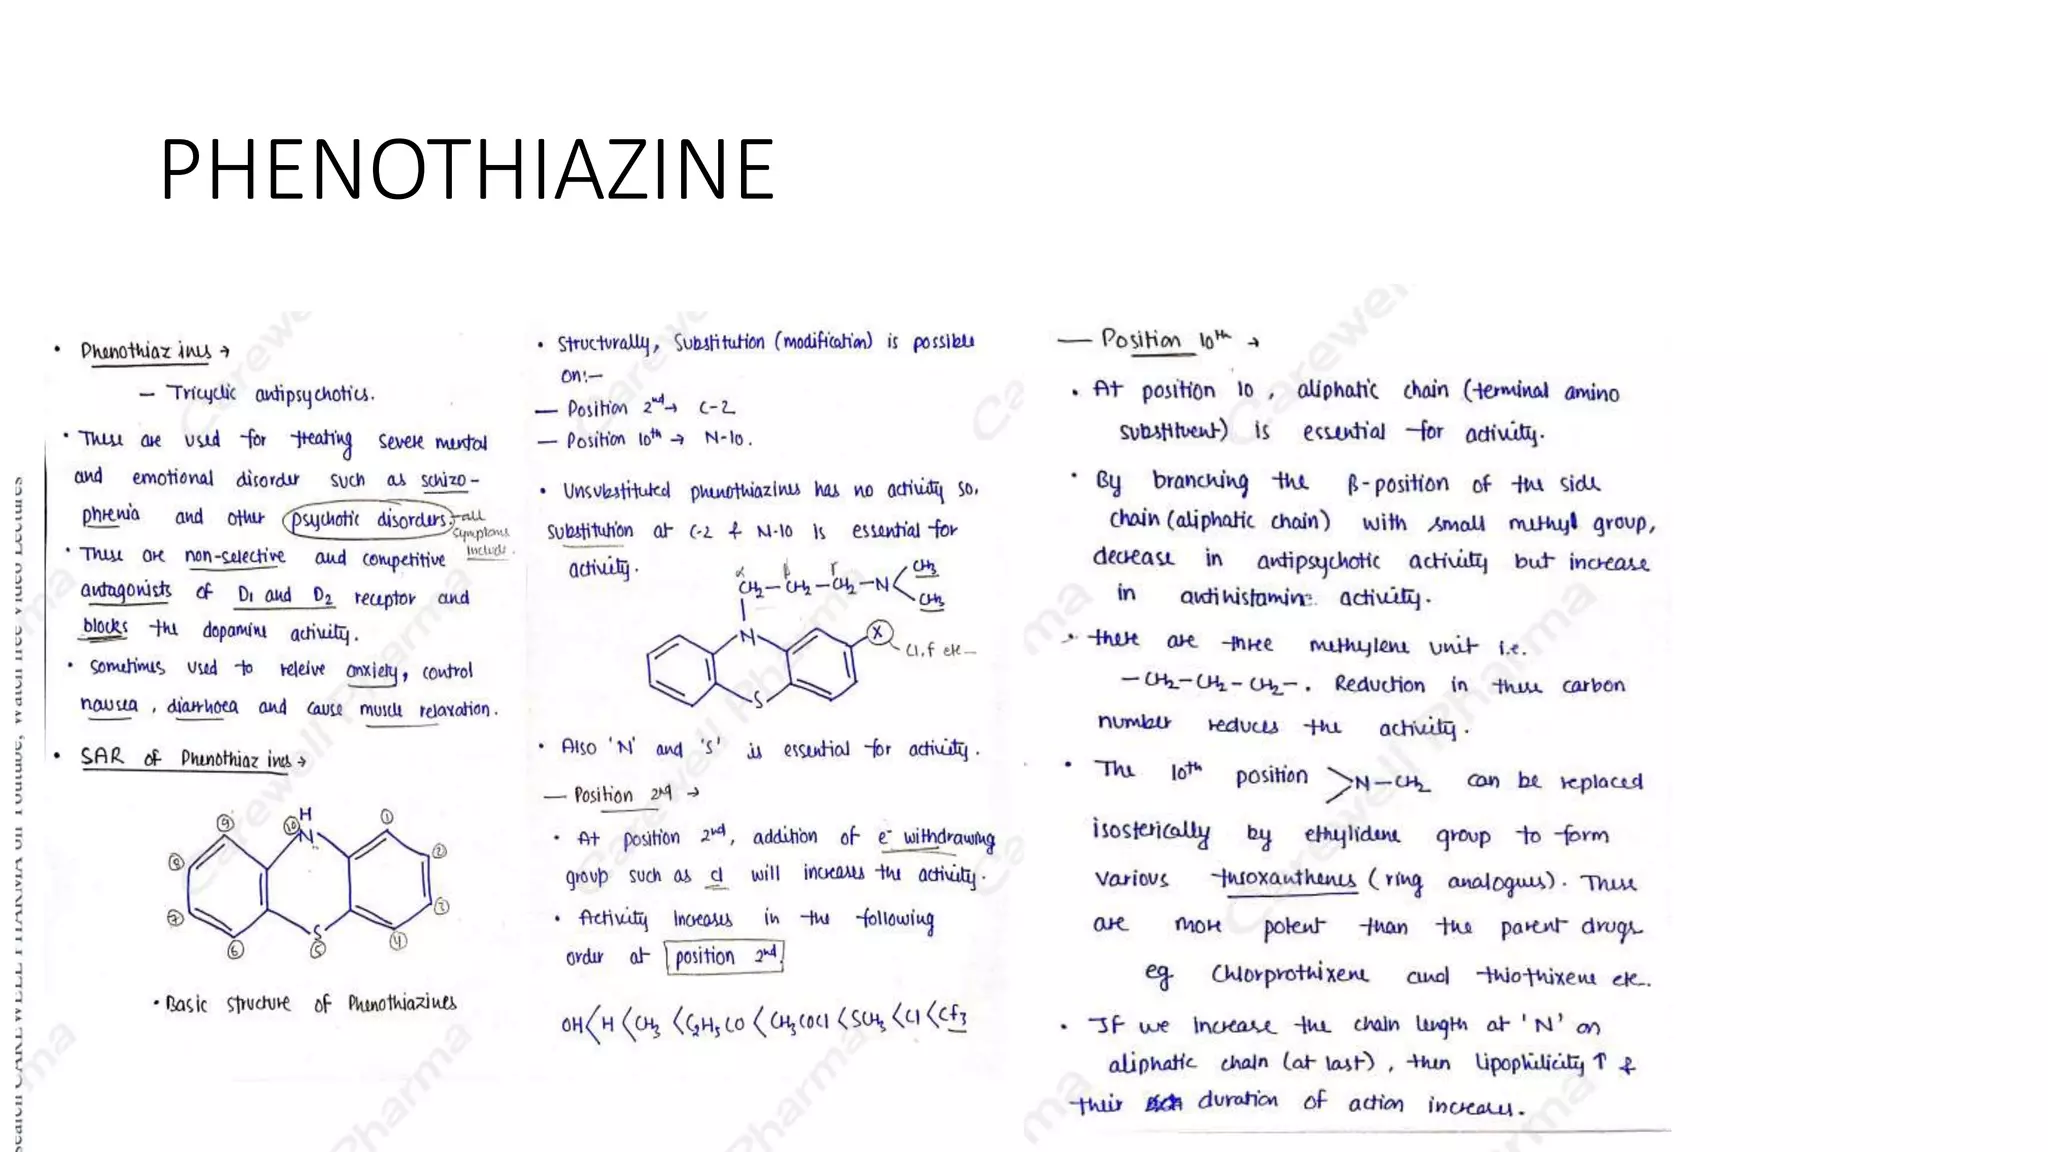 PHENOTHIAZINE
• Phenothiazines →
— Tricyclic antipsychotics.
• These are used for treating severe mental
and emotional disorder such as schizo-
phrenia and other psychotic disorders. → all
symptoms
include.
• These are non-selective and competitive
antagonists of D1 and D2 receptor and
blocks the dopamine activity.
• sometimes used to releive anxiety, control
nausea, diarrhoea and cause muscle relaxation.
• SAR of Phenothiazines →
H
N
S
1
2
3
4
5
6
7
8
9
10
• Basic structure of Phenothiazines
• Structurally, Substitution (modification) is possible
on:—
— Position 2nd → C-2
— Position 10th → N-10.
• Unsubstituted phenothiazines has no activity so,
substitution at C-2 & N-10 is essential for
activity.
α β γ
CH2—CH2—CH2—N
CH3
CH3
N
X
Cl, F etc—
S
• Also 'N' and 'S' is essential for activity.
— Position 2nd →
• At position 2nd, addition of e- withdrawing
group such as cl will increases the activity.
• Activity Increases in the following
order at position 2nd.
OH < H < CH3 < C2H5CO < CH3COCl < SCH3 < Cl < CF3
— Position 10th →
• At position 10, aliphatic chain (terminal amino
substituent) is essential for activity.
• By branching the β-position of the side
chain (aliphatic chain) with small methyl group,
decrease in antipsychotic activity but increase
in antihistamine activity.
• there are three methylene unit i.e.
—CH2—CH2—CH2—. Reduction in these carbon
number reduces the activity.
• The 10th position >N—CH2 can be replaced
isosterically by ethylidene group to form
various thioxanthenes (ring analogues). These
are more potent than the parent drugs
eg Chlorprothixene and thiothixene etc.
• If we increase the chain length at 'N' on
aliphatic chain (at last), then lipophilicity ↑ &
their duration of action increases.
Search CAREWELL PHARMA on Youtube, Watch free Video Lectures
Carewell Pharma